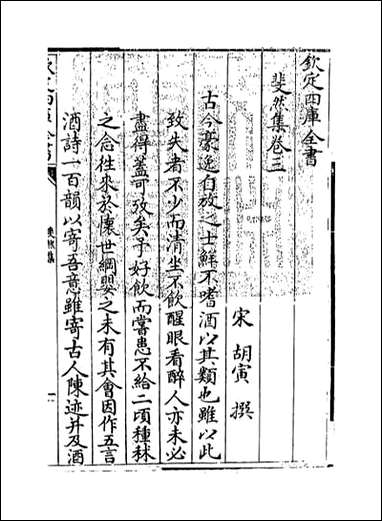 欽定四庫全書
斐然集卷三
宋 胡寅 撰
古今豪逸自放之士鮮不嗜酒以其類也雖以此
致失者不少而清坐不飲醒眼看醉人亦未必
盡得蓋可攷矣予好飲而嘗患不給二頃種秫
之念往來於懷世網嬰之未有其會因作五言
酒詩一百韻以寄吾意雖寄古人陳迹并及酒
欽定四庫全書
斐然集
一